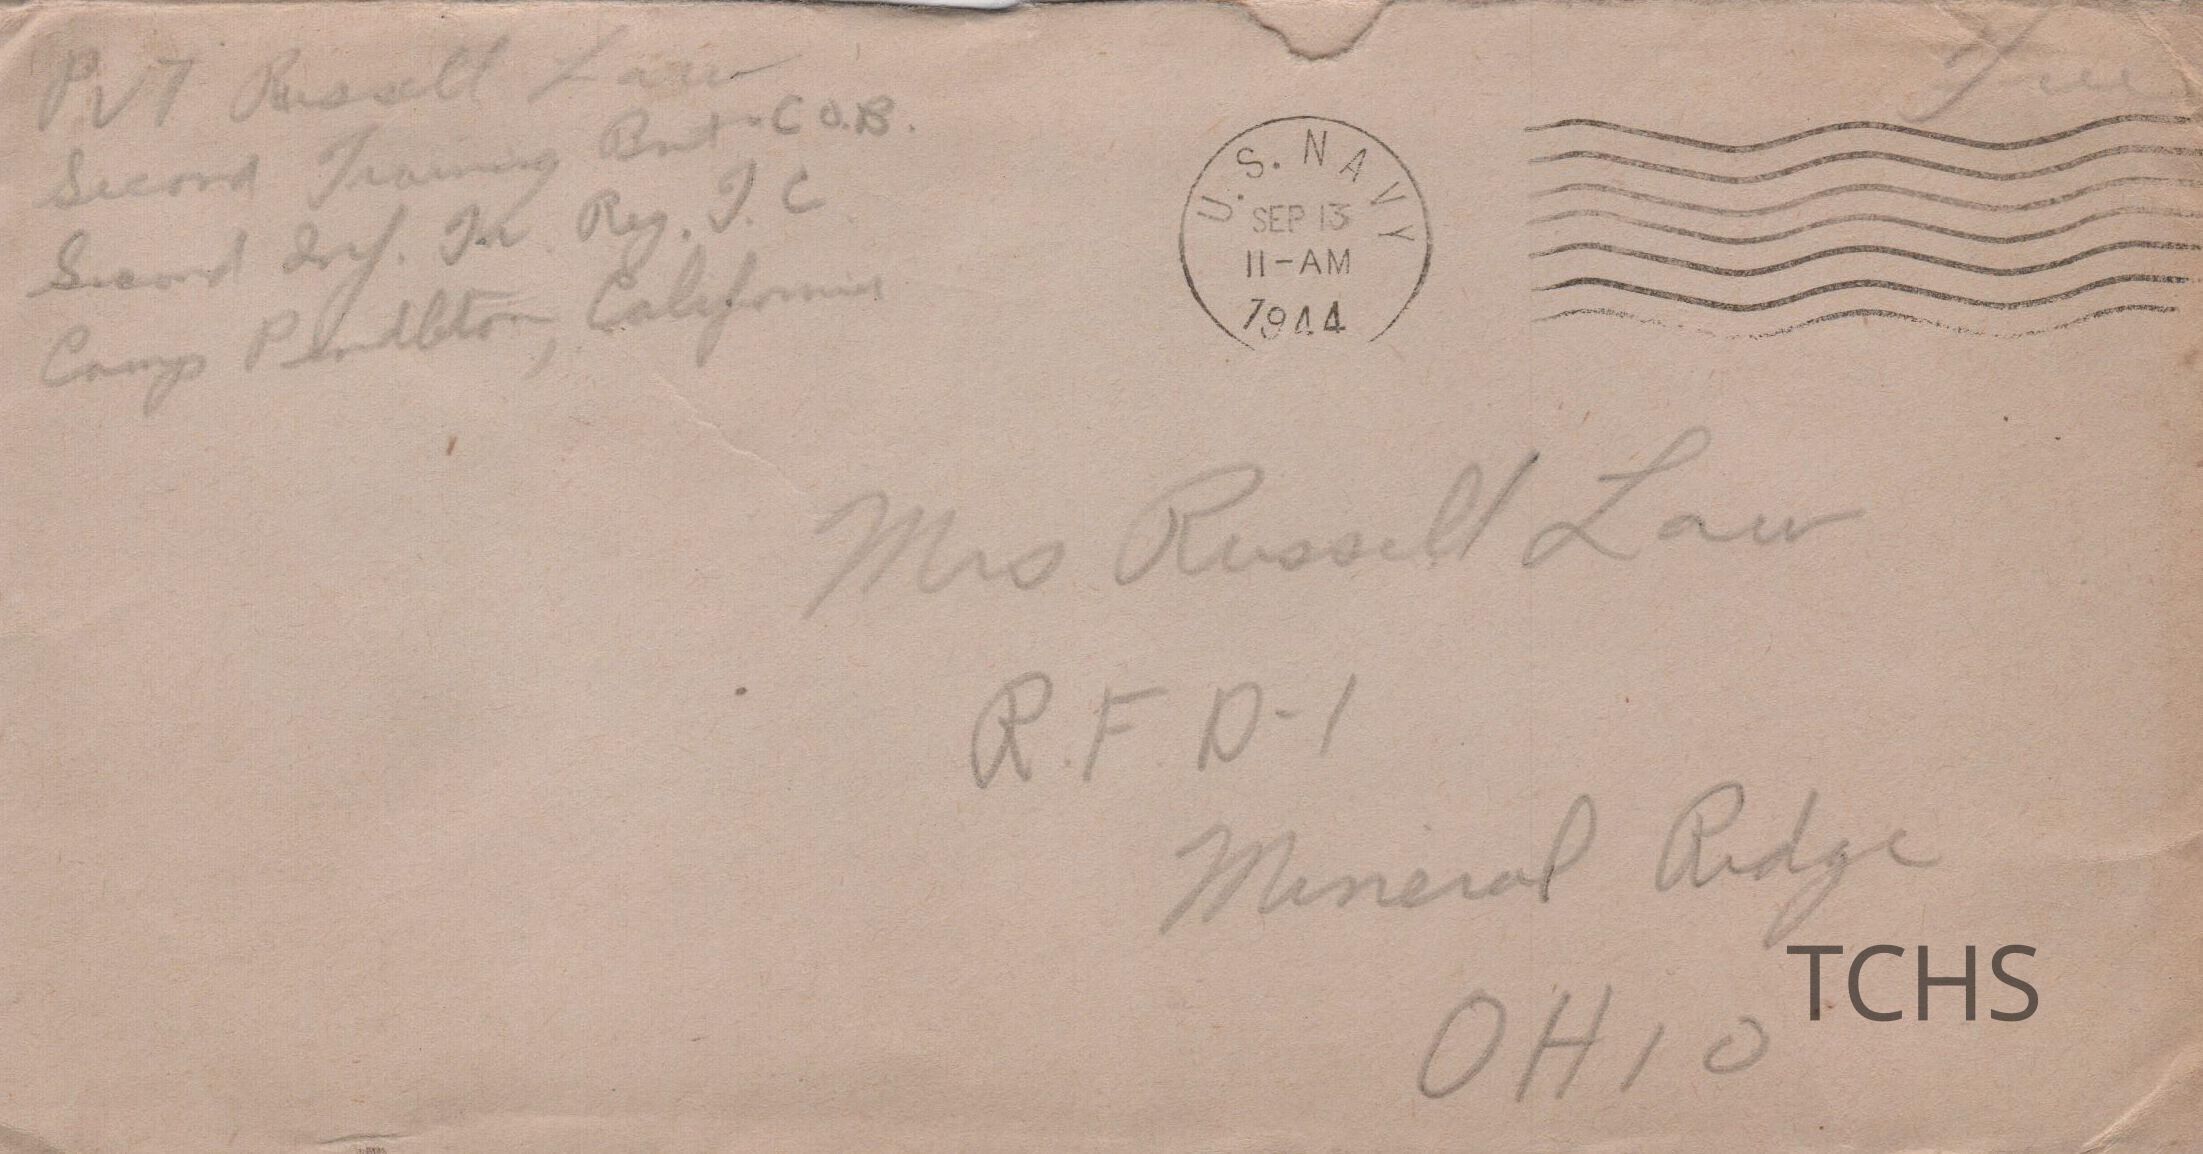 PVT Russell Law
Second Training Bnt. CO.B.
Second Inf. Tr. Reg. T. C
Camp Pendleton, California
Free
U.S. NAVY
SEP 13
11-AM
1944
Mrs Russell Law
R.F.D-1
Mineral Ridge
OHIO
TCHS